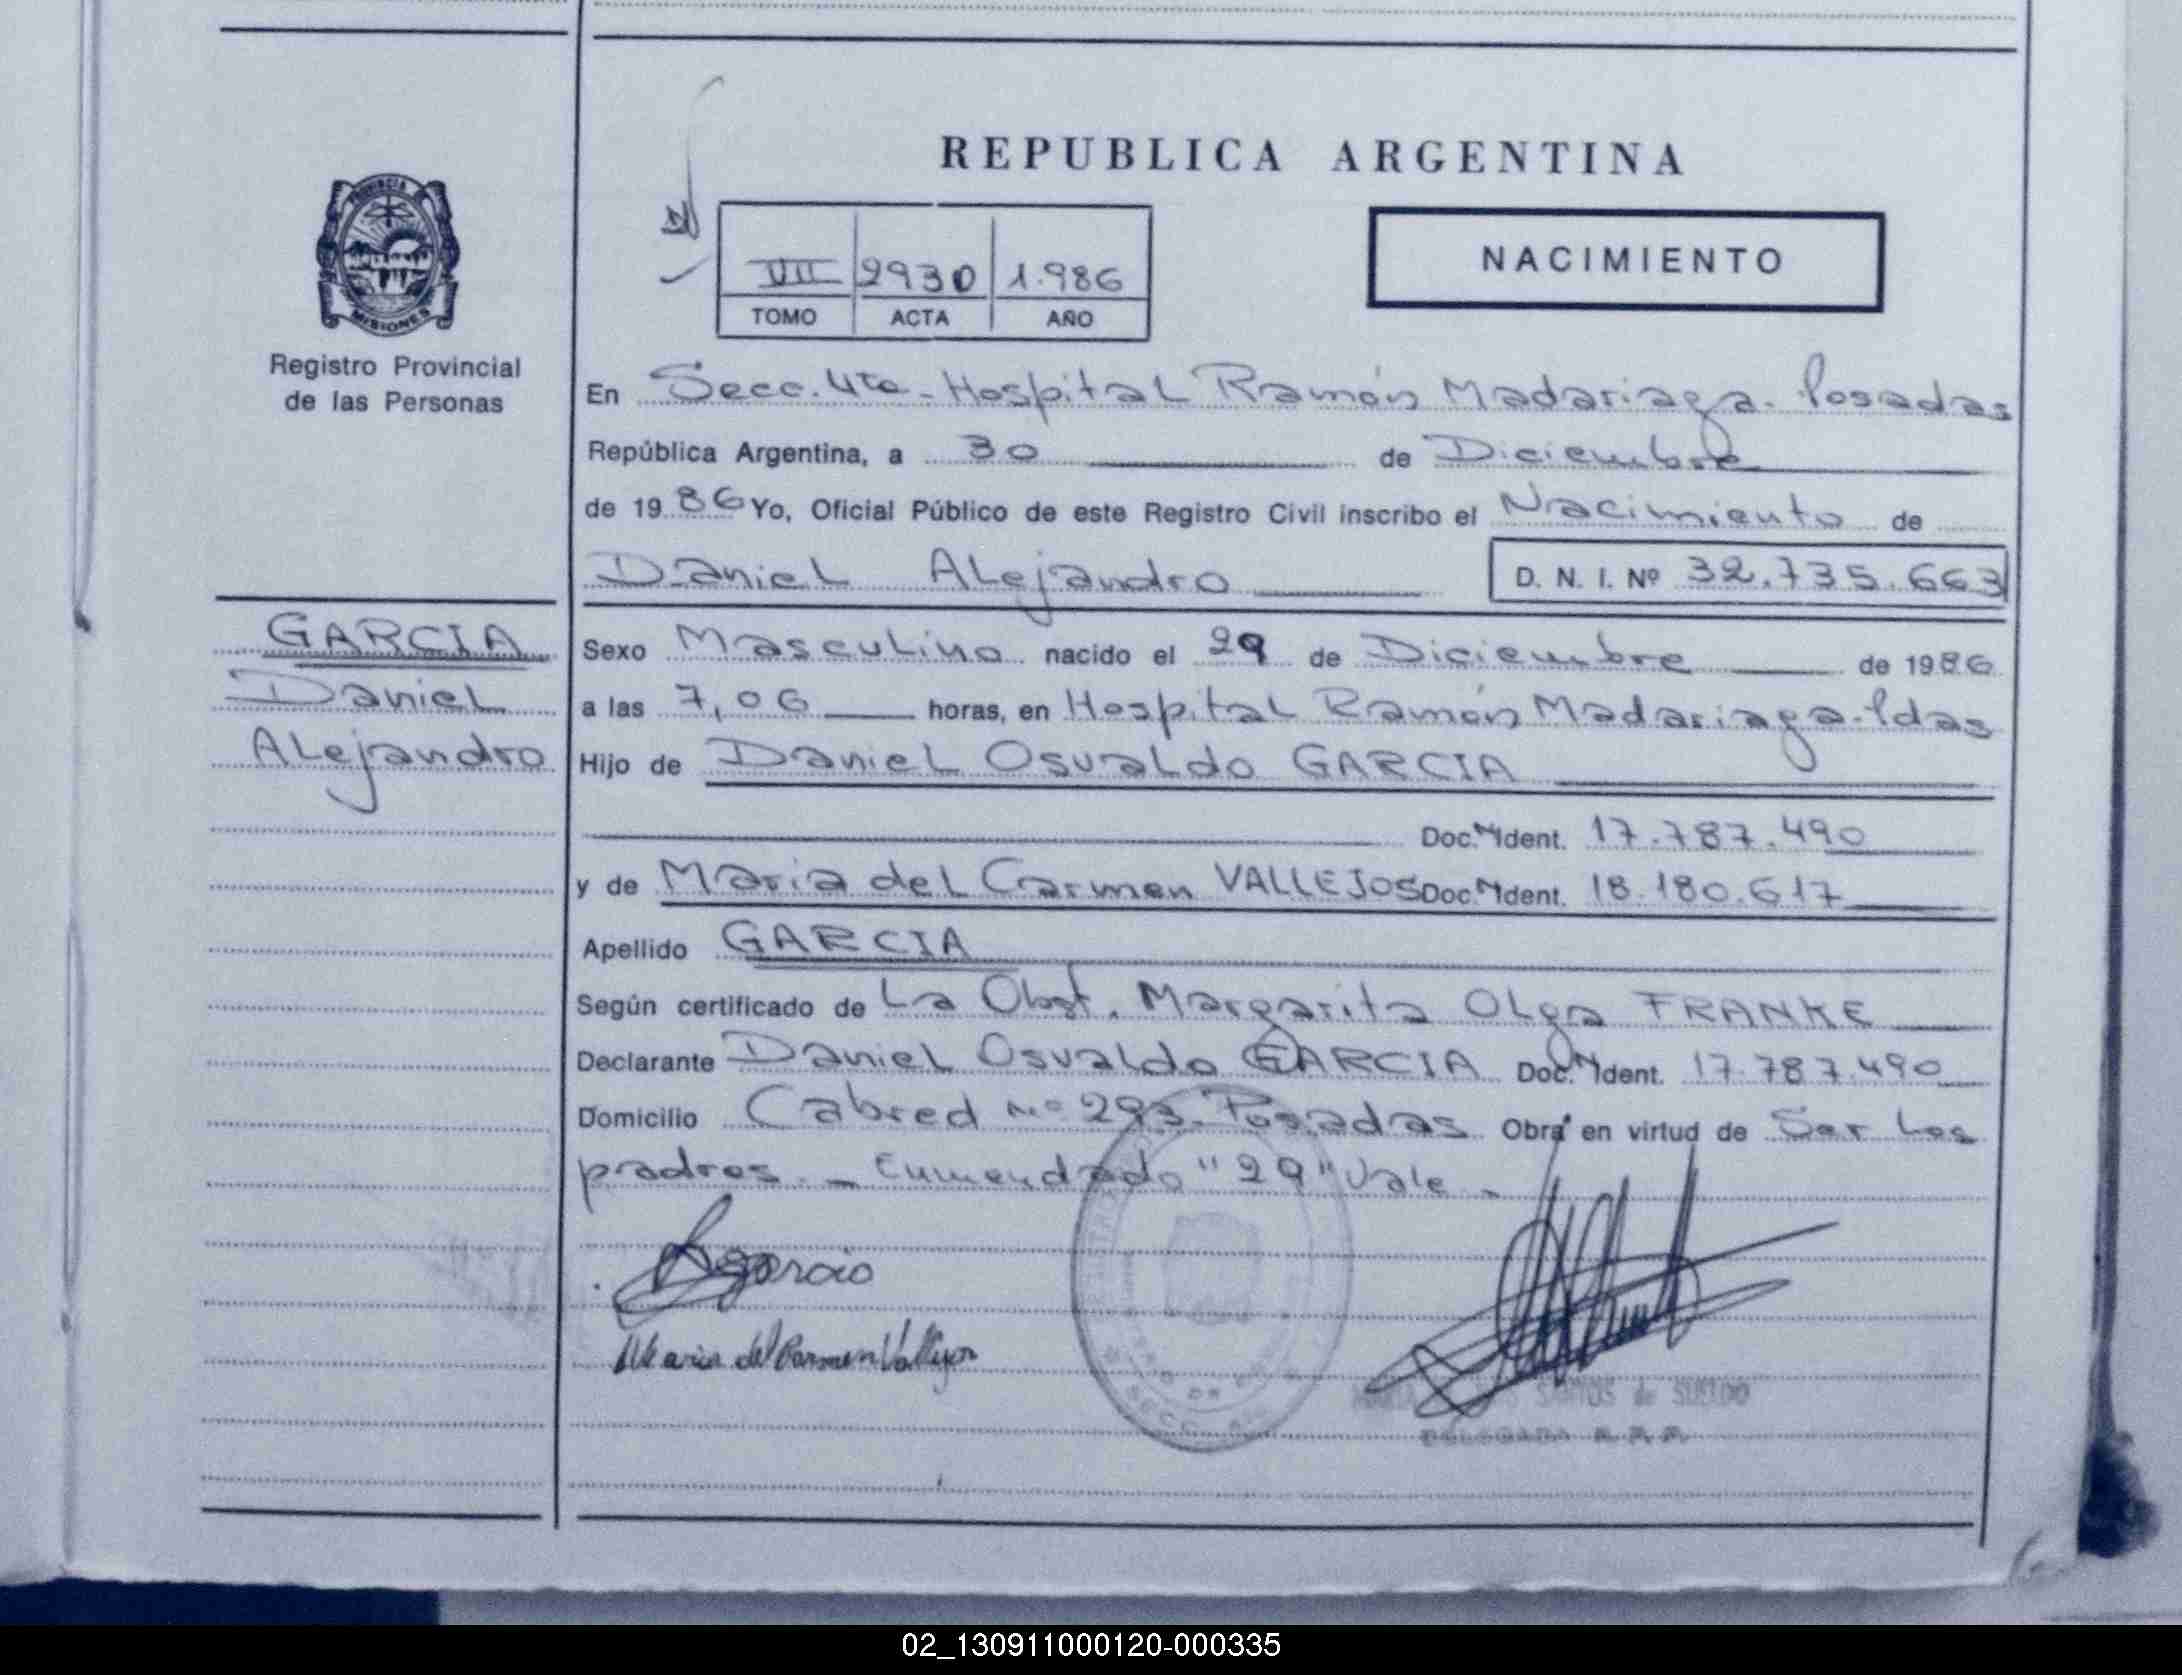 REPUBLICA ARGENTINA
PROVINCIA
MISIONES
Registro Provincial
de las Personas
VII 2930 1.986
TOMO ACTA AÑO
NACIMIENTO
En Secc. 4ta - Hospital Ramón Madariaga. Posadas
República Argentina, a 30 de Diciembre
de 1986 Yo, Oficial Público de este Registro Civil inscribo el Nacimiento de
Daniel Alejandro D. N. I. Nº 32.735.663
GARCIA
Daniel
Alejandro
Sexo Masculino nacido el 29 de Diciembre de 1986
a las 7,06 horas, en Hospital Ramón Madariaga-Pdas
Hijo de Daniel Osvaldo GARCIA
Doc. Ident. 17.787.490
y de Maria del Carmen VALLEJOS Doc. Ident. 18.180.617
Apellido GARCIA
Según certificado de La Obst. Margarita Olga FRANKE
Declarante Daniel Osvaldo GARCIA Doc. Ident. 17.787.490
Domicilio Cabred Nº 293 - Posadas Obra en virtud de Ser los
padres. - Enmendado "29" Vale -
Maria del Carmen Vallejos
SANTOS de SUELDO
DELEGADA R. P. P.
02_130911000120-000335